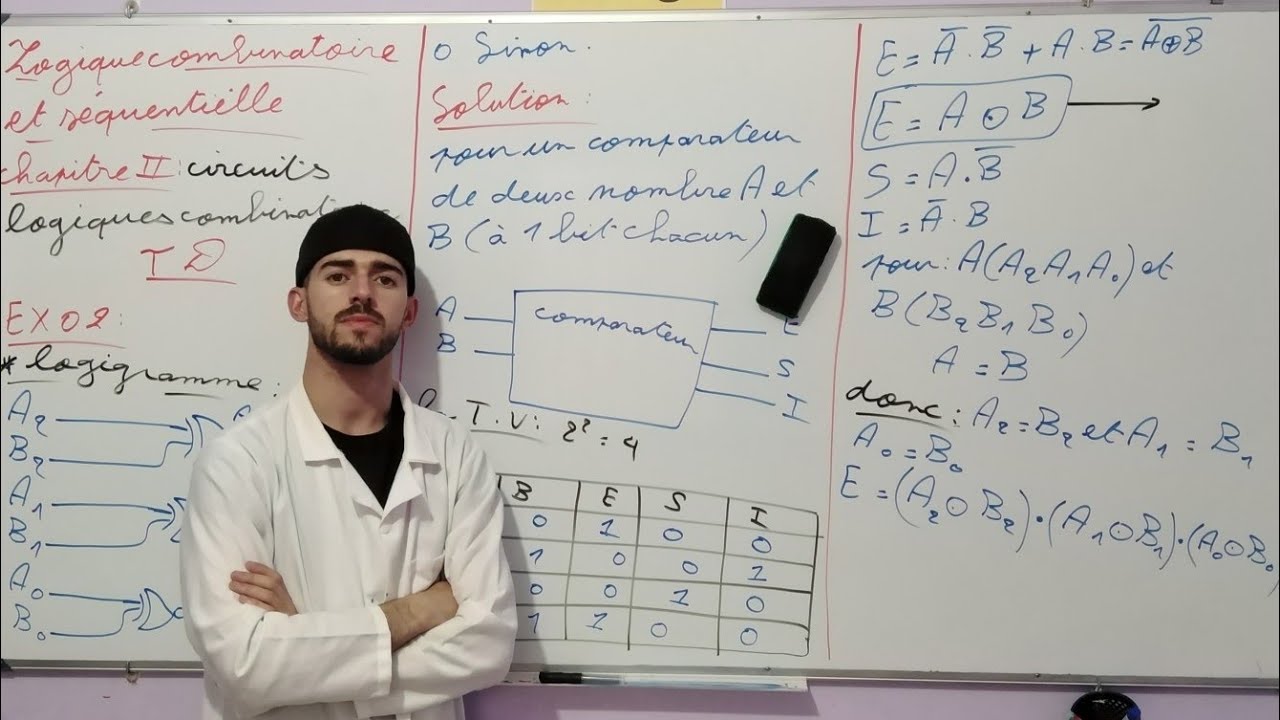 Logique combinatoire
et séquentielle
chapitre II : circuits
logiques combinatoire
TD
EX02:
* logigramme:
A₂
B₂
A₁
B₁
A₀
B₀
0 Sinon.
Solution:
pour un comparateur
de deux nombre A et
B (à 1 bit chacun)
A
B
comparateur
E
S
I
T.V: 2² = 4
B E S I
0 1 0 0
1 0 0 1
0 0 1 0
1 1 0 0
E = A̅ . B̅ + A . B = A̅⊕̅B̅
E = A ⊙ B
S = A . B̅
I = A̅ . B
pour: A(A₂A₁A₀) et
B(B₂B₁B₀)
A = B
donc: A₂ = B₂ et A₁ = B₁
A₀ = B₀
E = (A₂⊙B₂)•(A₁⊙B₁)•(A₀⊙B₀